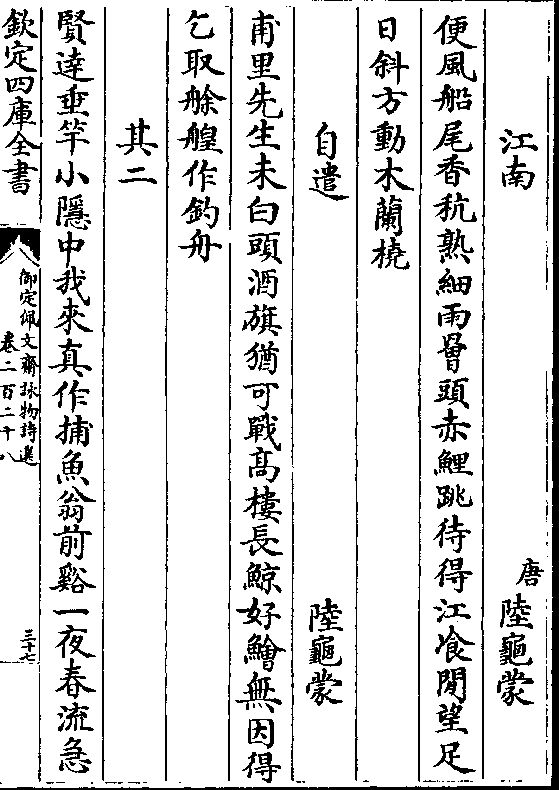 江南 唐 陸龜蒙
便風船尾香秔熟細雨罾頭赤鯉跳待得江飡閒望足
日斜方動木蘭橈
自遣 陸龜蒙
甫里先生未白頭酒旗猶可戰髙樓長鯨好鱠無因得
乞取艅艎作釣舟
其二
賢逹垂竿小隱中我來真作捕魚翁前谿一夜春流急
欽定四庫全書
御定佩文齋詠物詩選
卷二百二十八
三十七